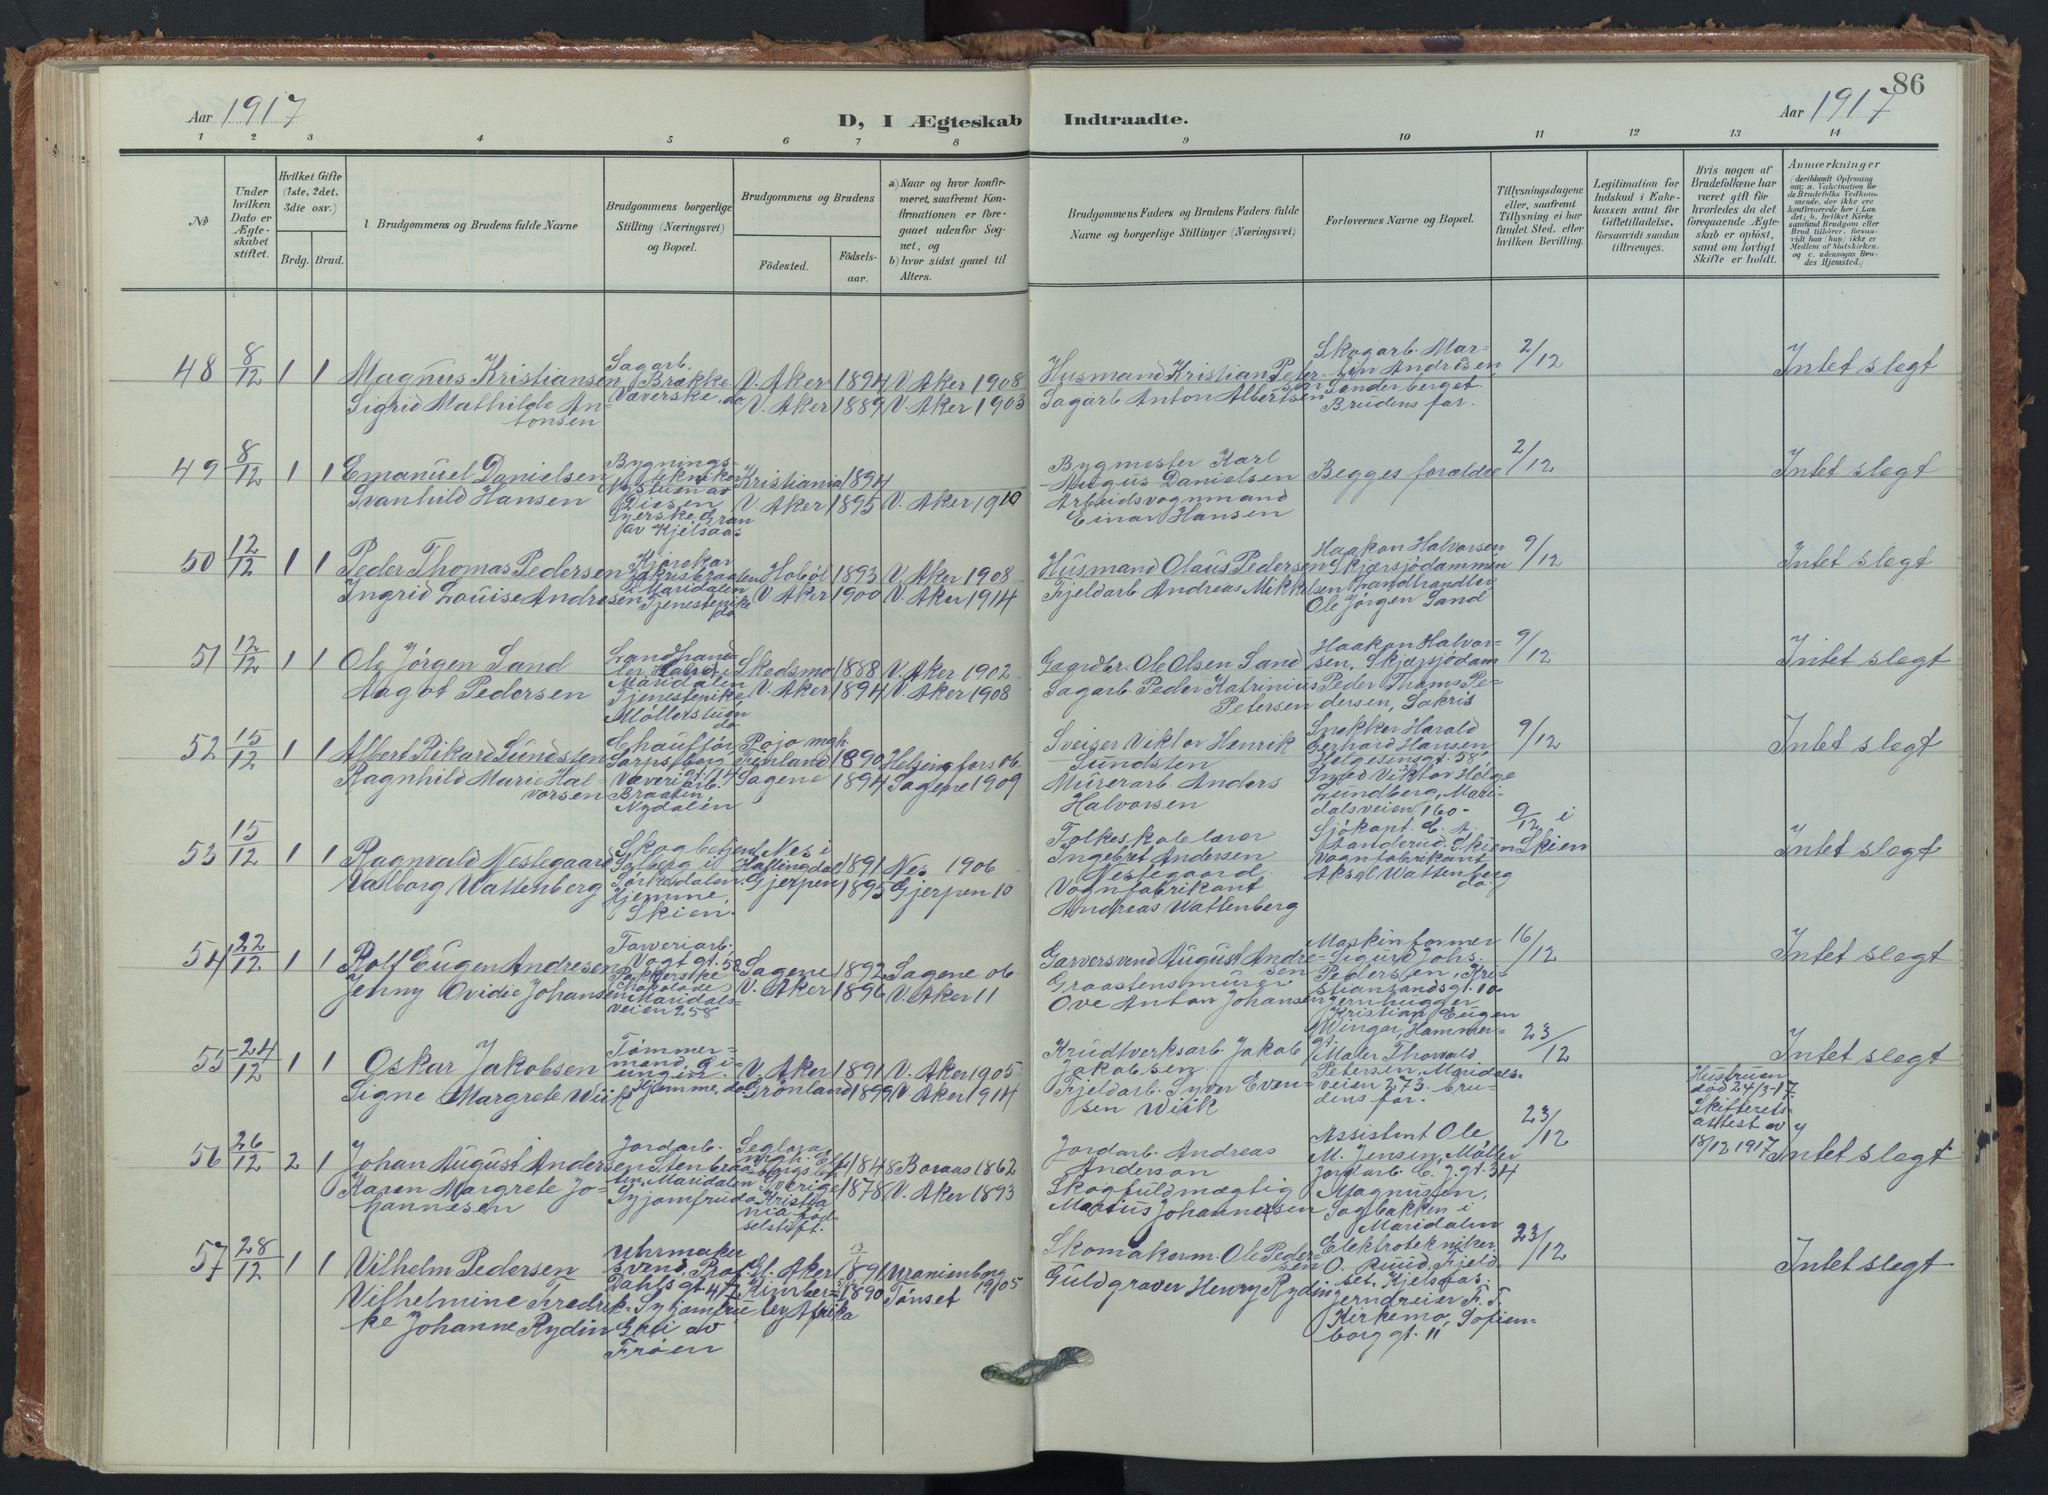 Aar 1917
D, I Ægteskab Indtraadte.
Aar 1917
86
1 2 3 4 5 6 7 8 9 10 11 12 13 14
No
Under hvilken Dato er Ægteskabet stiftet.
Hvilket Gifte (1ste, 2det, 3die osv.)
Brdg. Brud.
Brudgommens og Brudens fulde Navne
Brudgommens borgerlige Stilling (Næringsvei) og Bopæl.
Brudgommens og Brudens
Fødested.
Fødselsaar.
a) Naar og hvor konfirmeret, saafremt Konfirmationen er foregaaet udenfor Sognet, og
b) hvor sidst gaaet til Alters.
Brudgommens Faders og Brudens Faders fulde Navne og borgerlige Stillinger (Næringsvei)
Forlovernes Navne og Bopæl.
Tillysningsdagene eller, saafremt Tillysning ei har fundet Sted, efter hvilken Bevilling.
Legitimation for Indskud i Enkekassen samt for Giftetilladelse, forsaavidt saadan tiltrenges.
Hvis nogen af Brudefolkene har været gift før hvorledes da det foregaaende Ægteskab er opløst, samt om lovligt Skifte er holdt.
Anmærkninger
(deriblandt Oplysning om: a. Vakcination for de Brudefolks Vedkommende, der ikke ere konfirmerede her i Landet; b. hvilket Kirkesamfund Brudgom eller Brud tilhører, forsaavidt han (hun) ikke er Medlem af Statskirken, og c. udensogns Brudes Hjemsted.)
48 8/12 1 1
Magnus Kristiansen
Sigrid Mathilde Antonsen
Sagarb. Brække
Væverske, do
V. Aker 1894 V. Aker 1908
V. Aker 1889 V. Aker 1903
Husmand Kristian Petersen
Sagarb. Anton Albertsen
Skogarb. Martin Andresen
Sanderberget
Brudens far.
2/12
Intet slegt
49 8/12 1 1
Emanuel Danielsen
Svanhild Hansen
Bygningstekniker
Nystuen av
Diesen
Syerske Gran
av Kjelsaas
Kristiania 1894
V. Aker 1895 V. Aker 1910
Bygmester Karl
August Danielsen
Arbeidsvognmand
Einar Hansen
Begges forældre
2/12
Intet slegt
50 12/12 1 1
Peder Thomas Pedersen
Ingrid Louise Andresen
Kjørekar
Sakrisbraaten
Maridalen
Tjenestepike
do
Hobøl 1893 V. Aker 1908
V. Aker 1900 V. Aker 1914
Husmand Olaus Pedersen
Fjeldarb. Andreas Mikkelsen
Haakon Halvorsen
Skjærsjødammen
Landhandler
Ole Jørgen Sand
9/12
Intet slegt
51 12/12 1 1
Ole Jørgen Sand
Aagot Pedersen
Landhandler
Maridalen
Tjenestepike
Møllerstuen
do
Skedsmo 1888 V. Aker 1902
V. Aker 1894 V. Aker 1908
Gaardbr. Ole Olsen Sand
Sagarb. Peder Katrinius
Petersen
Haakon Halvorsen, Skjærsjødam
Peder Thoms Pedersen, Sakris
9/12
Intet slegt
52 15/12 1 1
Albert Rikard Sundsten
Ragnhild Marie Halvorsen
Chauffør
Sarpsborg
gt. 14
Væveriarb.
Braaten,
Nydalen
Pojo mgh.
Finland 1890 Helsingfors 06
Sagene 1894 Sagene 1909
Sveiser Viktor Henrik
Sundsten
Murerarb. Anders
Halvorsen
Snekker Harald
Gerhard Hansen
Helgesensgt. 58
Smed Viktor Helge
Lundberg, Maridalsveien 160
9/12
Intet slegt
53 15/12 1 1
Ragnvald Nestegaard
Valborg Wattenberg
Skogbetjent
Solberg i
Sørkedalen.
Hjemme,
Skien.
Nes i
Hallingdal 1891 Nes 1906
Gjerpen 1895 Gjerpen 10
Folkeskolelærer
Ingebret Andersen
Nestegaard
Vognfabrikant
Andreas Wattenberg
Sjøkapt. C. A.
Skien
Vognfabrikant
Aksel Wattenberg
do.
9/12 i
Skien
Intet slegt
54 22/12 1 1
Rolf Eugen Andresen
Jenny Ovidie Johansen
Farveriarb.
Vogt gt. 58
Pakkerske
Chokolade
Maridalsveien 258
Sagene 1892 Sagene 06
V. Aker 1896 V. Aker 11
Garversvend August Andresen
Graastensmurer
Ove Anton Johansen
Maskinformer
Sigurd Johs.
Pedersen, Kristiansandsgt. 10
Jernhugger
Kristian Eugen
Winger, Hammergt.
16/12
Intet slegt
55 24/12 1 1
Oskar Jakobsen
Signe Margrete Wiik
Tømmermand,
Hjemme, do
V. Aker 1891 V. Aker 1905
Grønland 1899 V. Aker 1914
Krudtverksarb. Jakob
Jakobsen
Fjeldarb. Syver Evensen Wiik
Maler Thorvald
Petersen, Maridalsveien 273. brudens far.
23/12
Intet slegt
56 26/12 2 1
Johan August Anderson
Karen Margrete Johannesen
Jordarb.
Stenbraaten, Maridalen
Syjomfru do
Seglora,
mgh. Elfsborgs len
Sverige 1848 Boraas 1862
Kristiania fødselstift. 1878 V. Aker 1893
Jordarb. Andreas
Anderson
Skogfuldmægtig
Marius Johannesen
Assistent Ole
M. Jensen, Møllergt. 34
Jordarb. C. J.
Magnusson,
Sagbakken i
Maridalen
23/12
Hustruen
død 24/3-17.
Skifterets-
attest av
18/12 1917
Intet slegt
57 28/12 1 1
Vilhelm Pedersen
Vilhelmine Fredrikke Johanne Rydin
Uhrmaker
svend, Prof.
Dahls gt. 47
Syjomfru
Grei av
Frøen
Gl. Aker 13/1 1891 Uranienborg 1905
Kimberley Afrika 1890 Tønset
Skomakerm. Ole Pedersen
Guldgraver Henry Rydin
Elektrotekniker
O. Ruud, Fjeldset, Kjelsaas.
Jerndreier F. F.
Kirkemo, Sofienborg gt. 11
23/12
Intet slegt